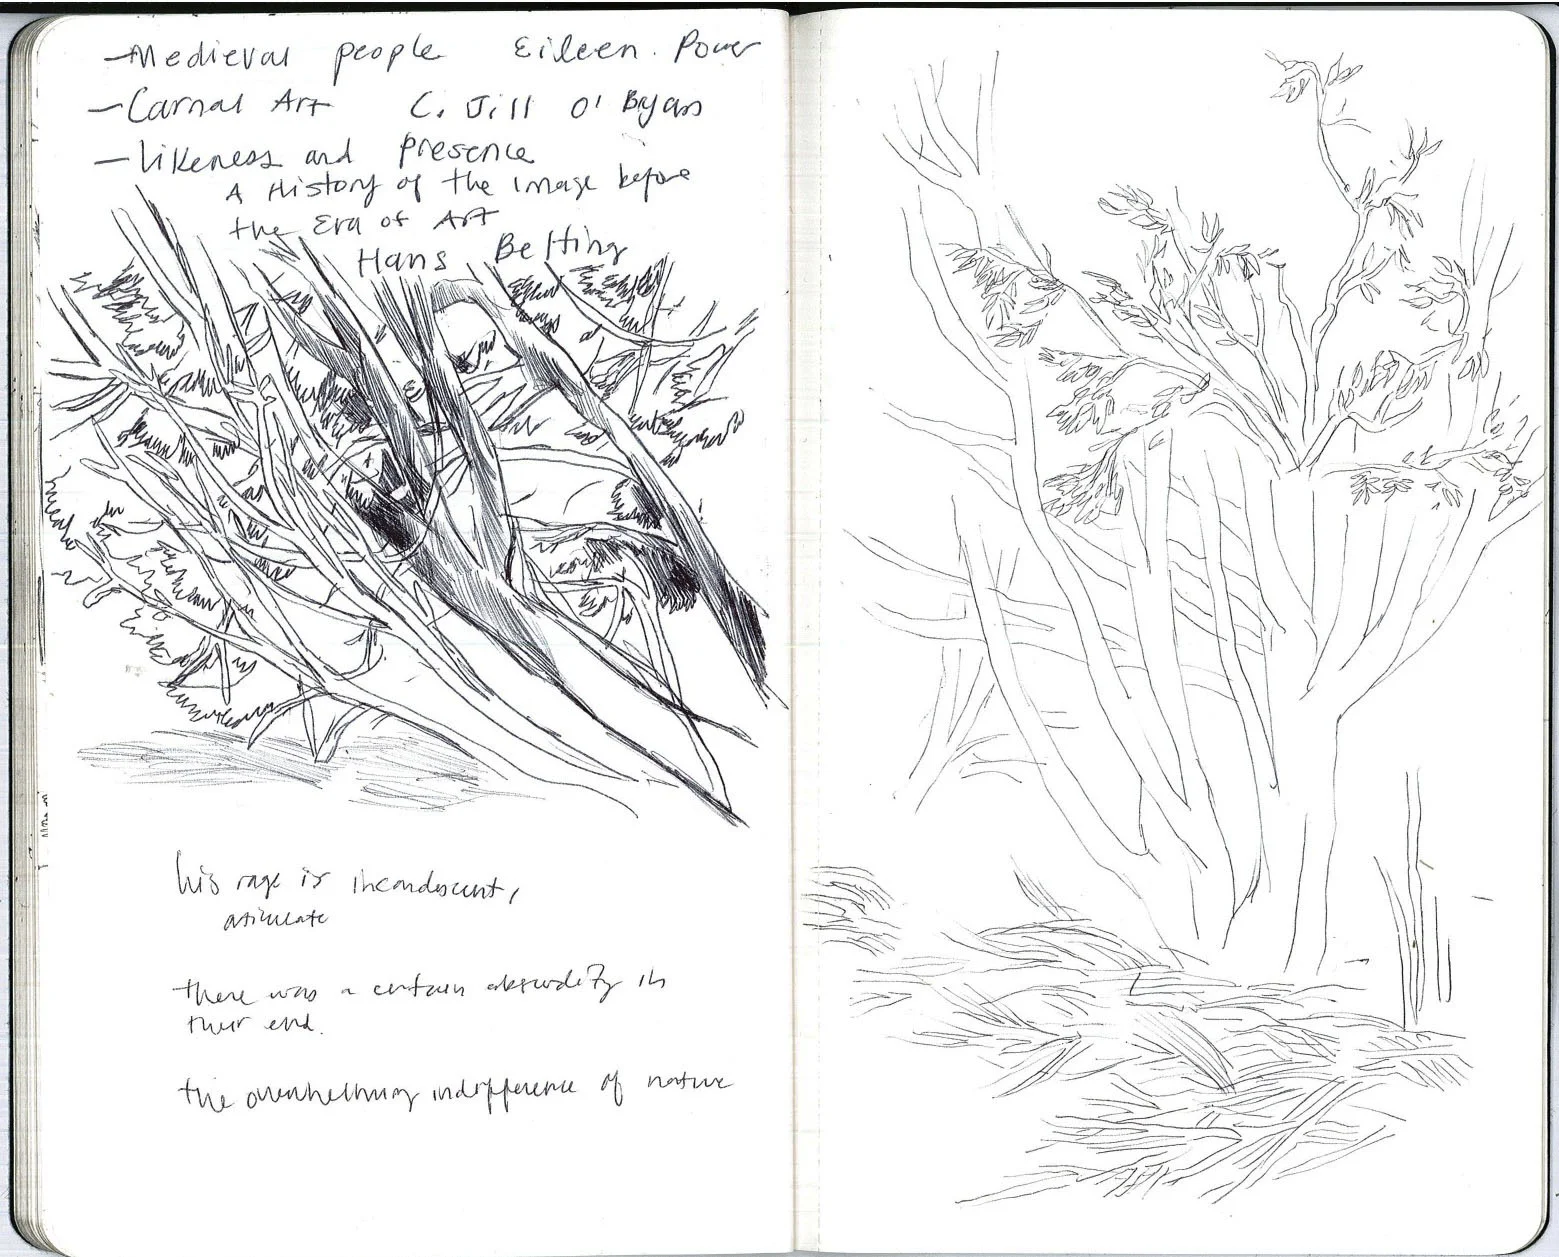 —Medieval people Eileen. Power
—Carnal Art C. Jill O' Byan
—Likeness and Presence
A History of the Image before
the Era of Art
Hans Belting
his rage is incandescent,
there was a certain absurdity in
their end.
the overwhelming indifference of nature